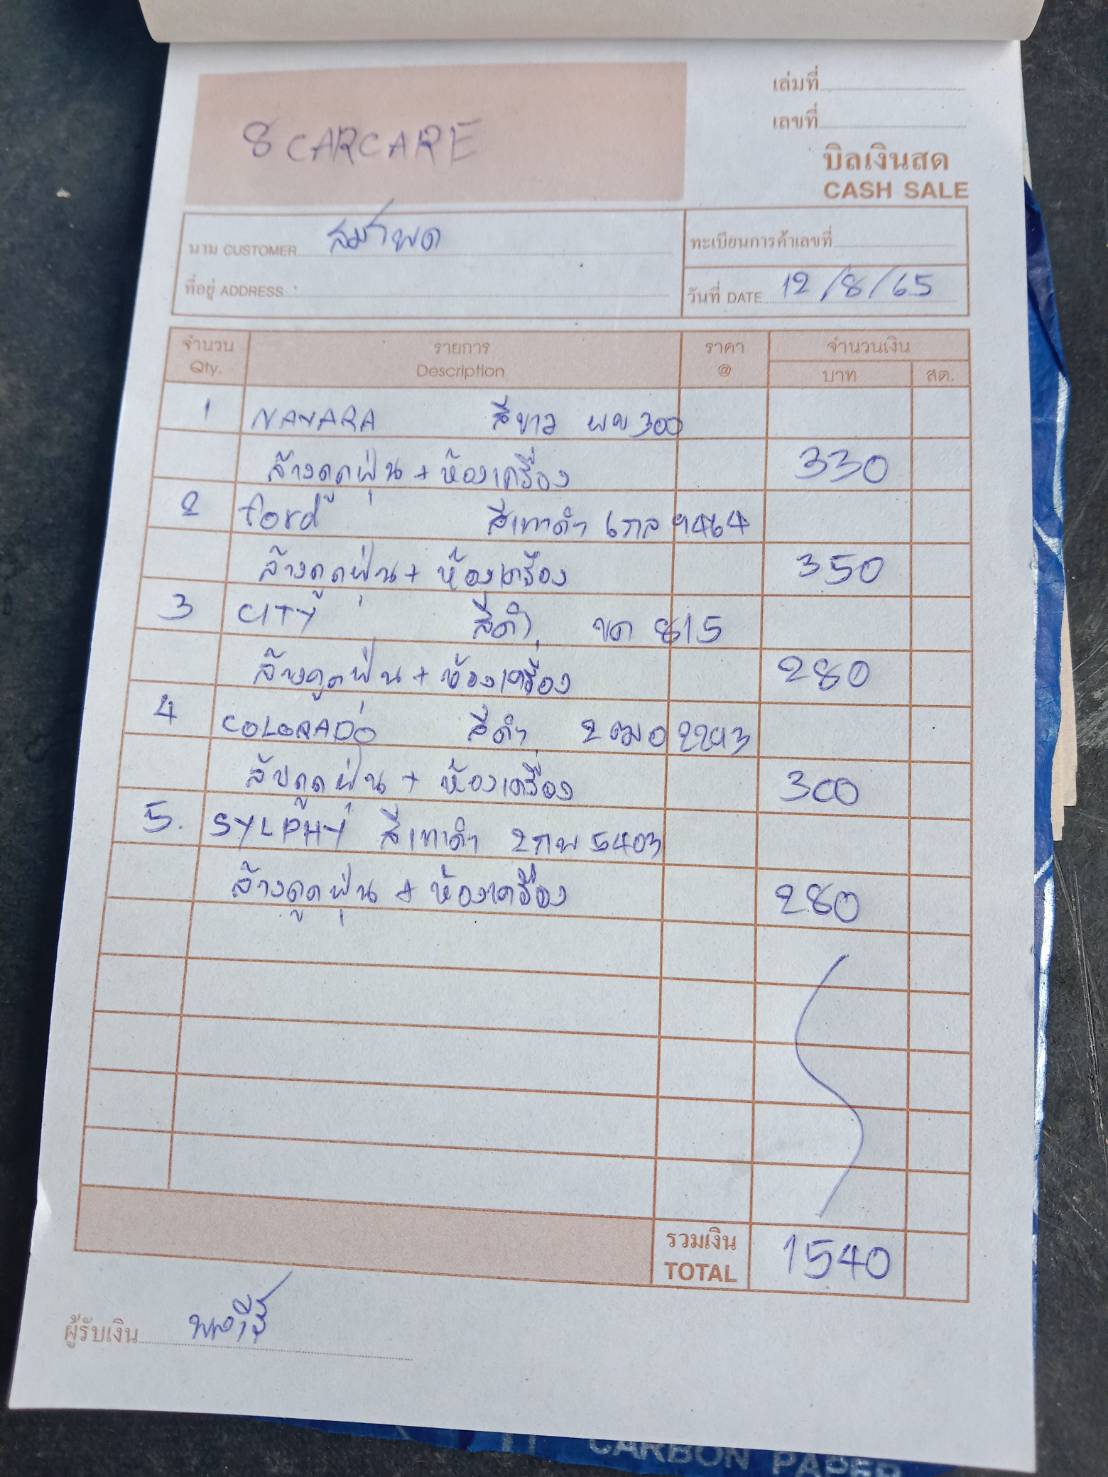 เล่มที่
เลขที่
8 CARCARE
บิลเงินสด
CASH SALE
นาม CUSTOMER
ทะเบียนการค้าเลขที่
ที่อยู่ ADDRESS
วันที่ DATE 12/8/65
จำนวน รายการ ราคา จำนวนเงิน
Qty. Description @ บาท สต.
1 NAVARA สีขาว ผข 300
ล้างดูดฝุ่น + ห้องเครื่อง 330
2 ford สีเทาดำ 6กล 9464
ล้างดูดฝุ่น + ห้องเครื่อง 350
3 CITY สีดำ ขด 815
ล้างดูดฝุ่น + ห้องเครื่อง 280
4 COLORADO สีดำ 2293
ล้างดูดฝุ่น + ห้องเครื่อง 300
5. SYLPHY สีเทาดำ 2กพ 5403
ล้างดูดฝุ่น + ห้องเครื่อง 280
รวมเงิน
TOTAL 1540
ผู้รับเงิน
CARBON PAPER